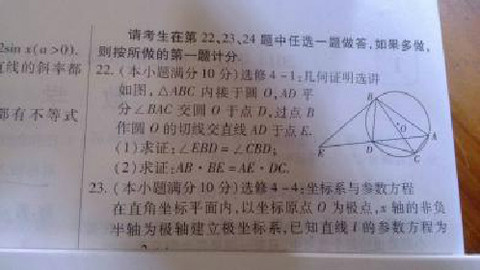 请考生在第22、23、24题中任选一题做答,如果多做,
则按所做的第一题计分.
2sin x(a>0).
直线的斜率都
都有不等式
22.(本小题满分10分)选修4-1:几何证明选讲
如图,△ABC内接于圆O,AD平
分∠BAC交圆O于点D,过点B
作圆O的切线交直线AD于点E.
(1)求证:∠EBD=∠CBD;
(2)求证:AB·BE=AE·DC.
B
O
A
E
D
C
23.(本小题满分10分)选修4-4:坐标系与参数方程
在直角坐标平面内,以坐标原点O为极点,x轴的非负
半轴为极轴建立极坐标系,已知直线l的参数方程为